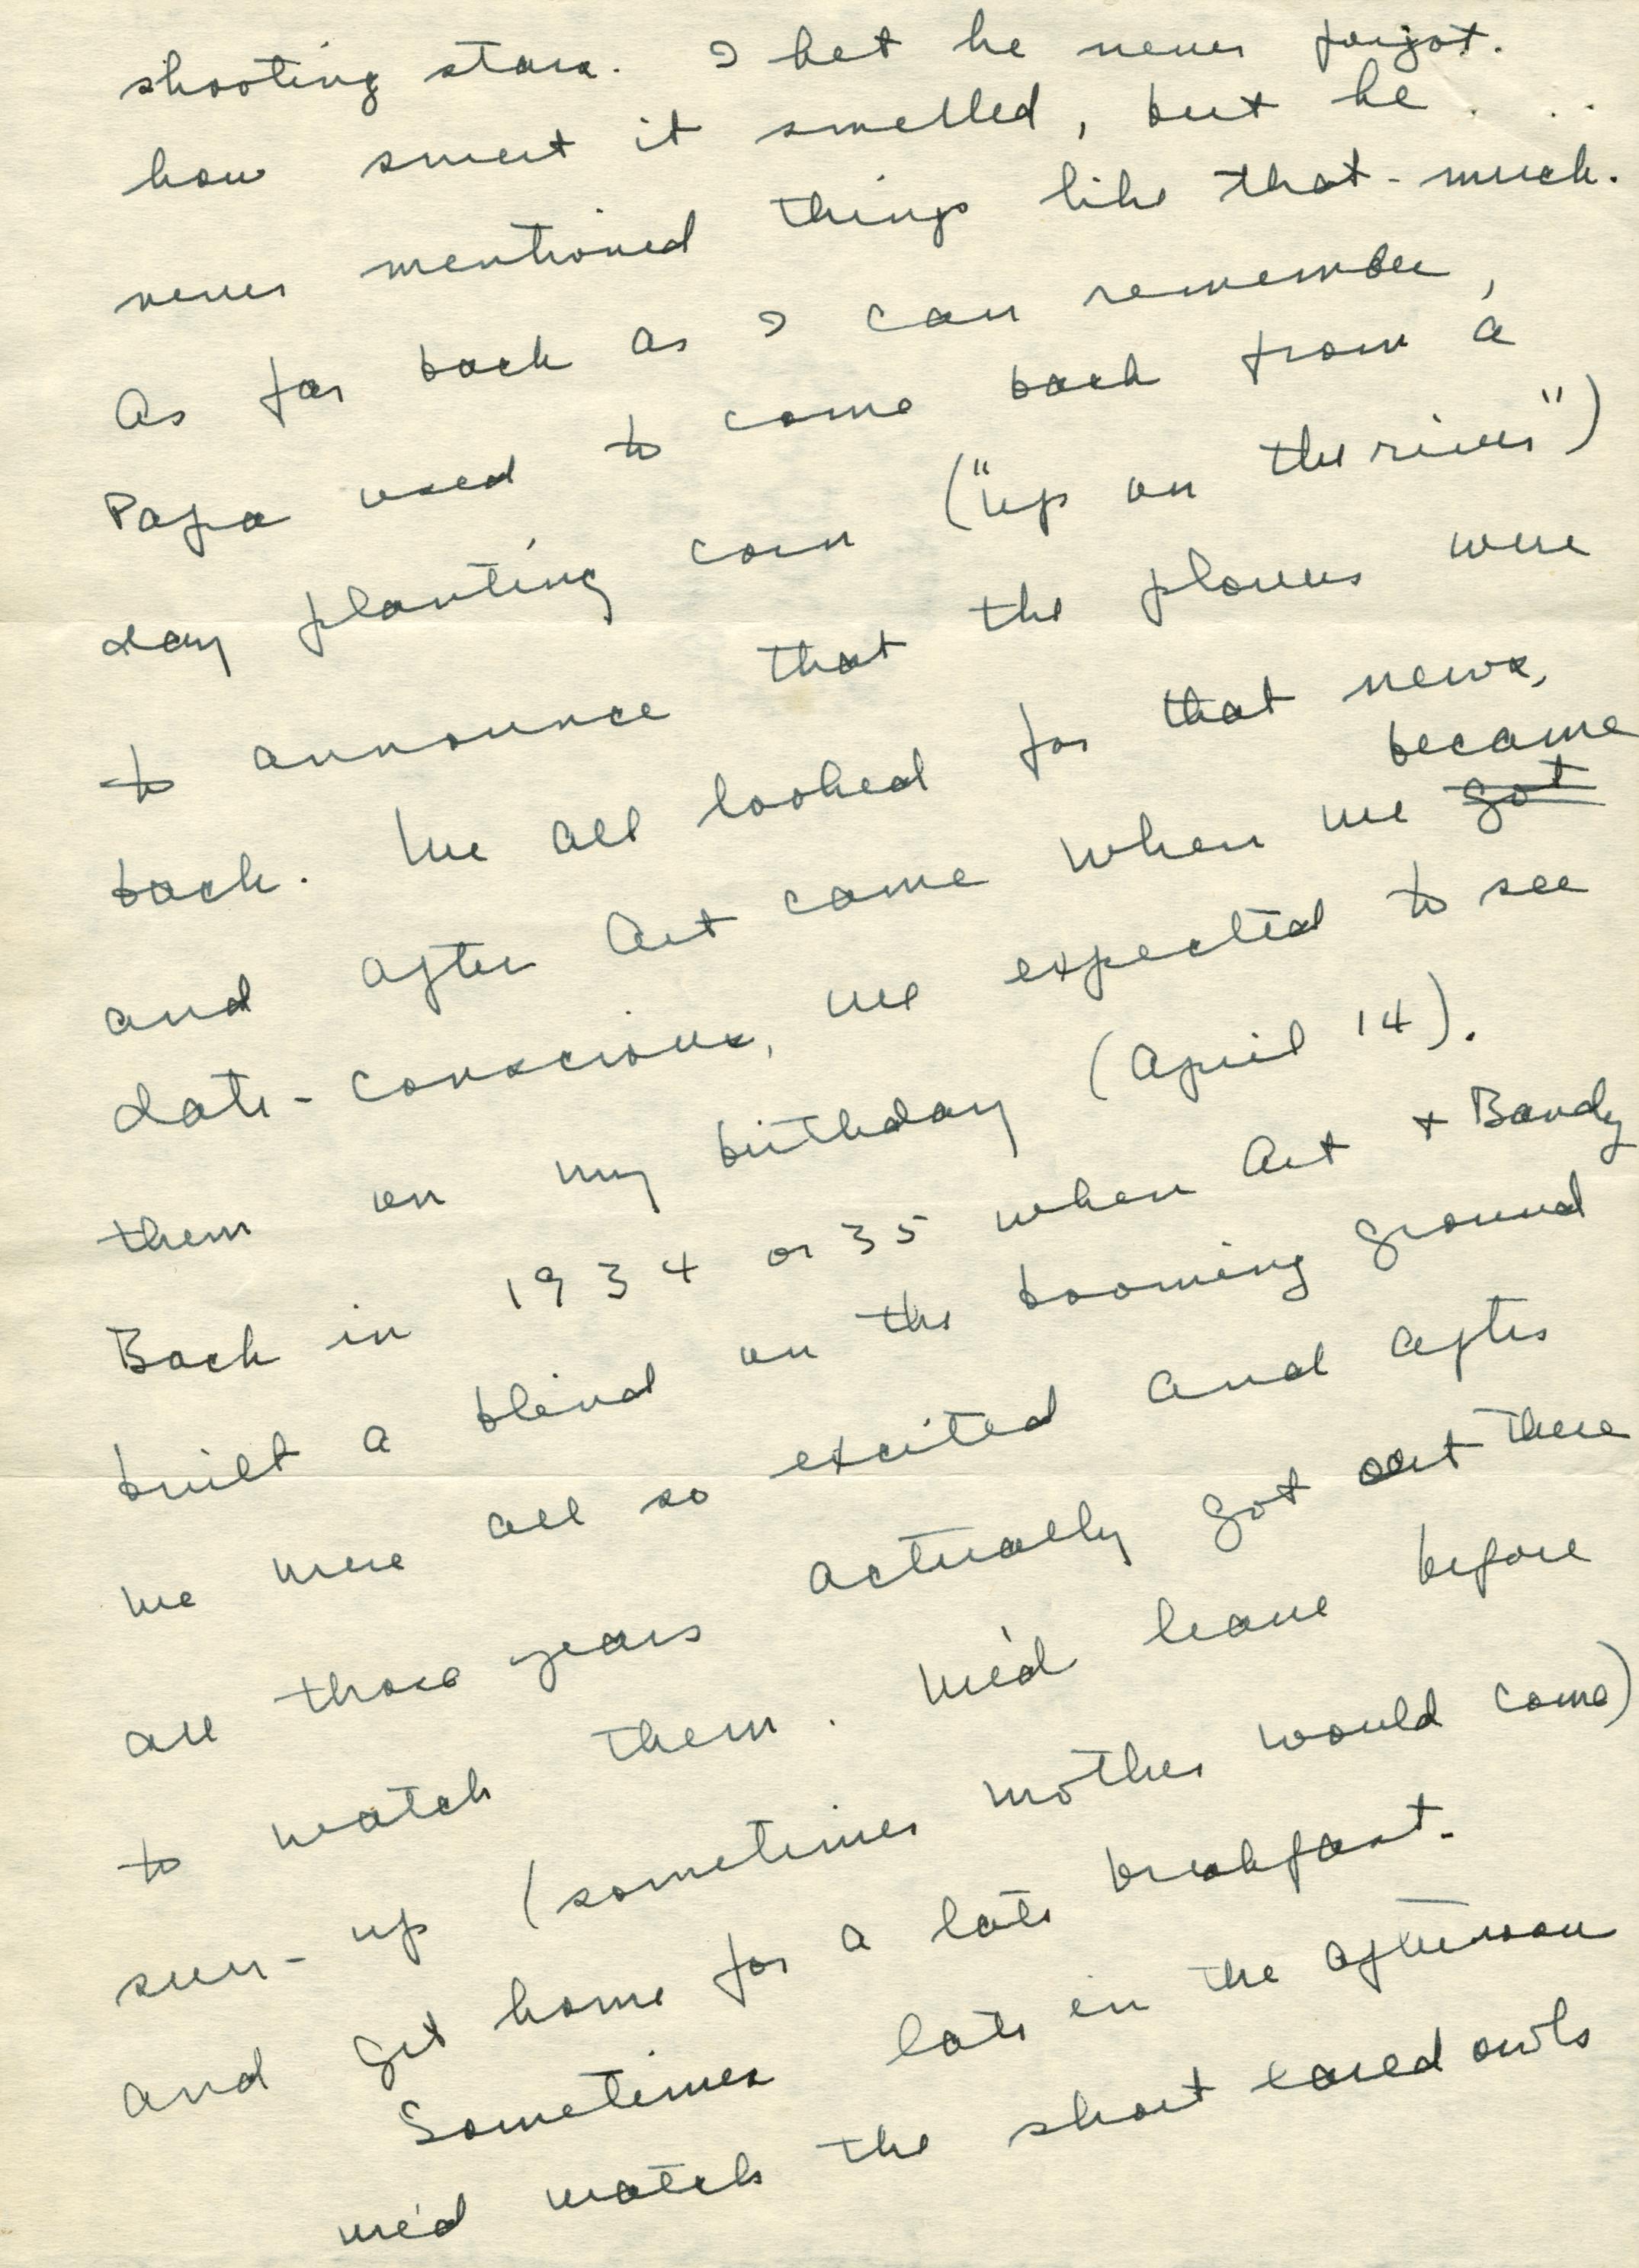 shooting stars. I bet he never forgot.
how sweet it smelled, but he
never mentioned things like that - much.
As far back as I can remember,
Papa used to come back from a
day planting corn ("up on the river")
to announce that the plovers were
back. We all looked for that news,
and after Art came when we ~~got~~ became
date-conscious, we expected to see
them on my birthday (April 14).
Back in 1934 or 35 when Art + Bandy
built a blind on the booming ground
we were all so excited and after
all those years actually got out there
to watch them. We'd leave before
sun-up (sometimes mother would come)
and get home for a late breakfast.
Sometimes late in the afternoon
we'd watch the short eared owls